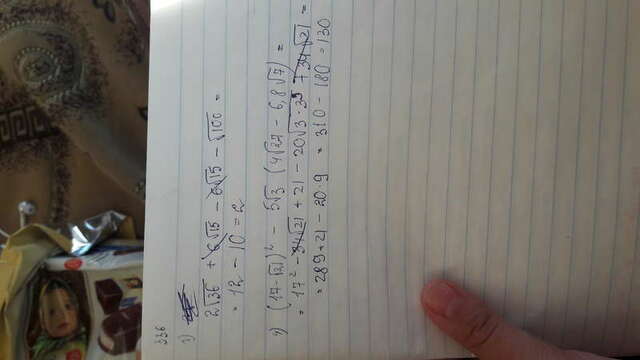 336
2√36 + 6√15 - 6√15 - √100 =
= 12 - 10 = 2
4) (17-√21)² - 5√3 (4√27 - 6,8√7) =
= 17² - 34√21 + 21 - 20√3·3³ + 34√21 =
= 289+21 - 20·9 = 310 - 180 = 130